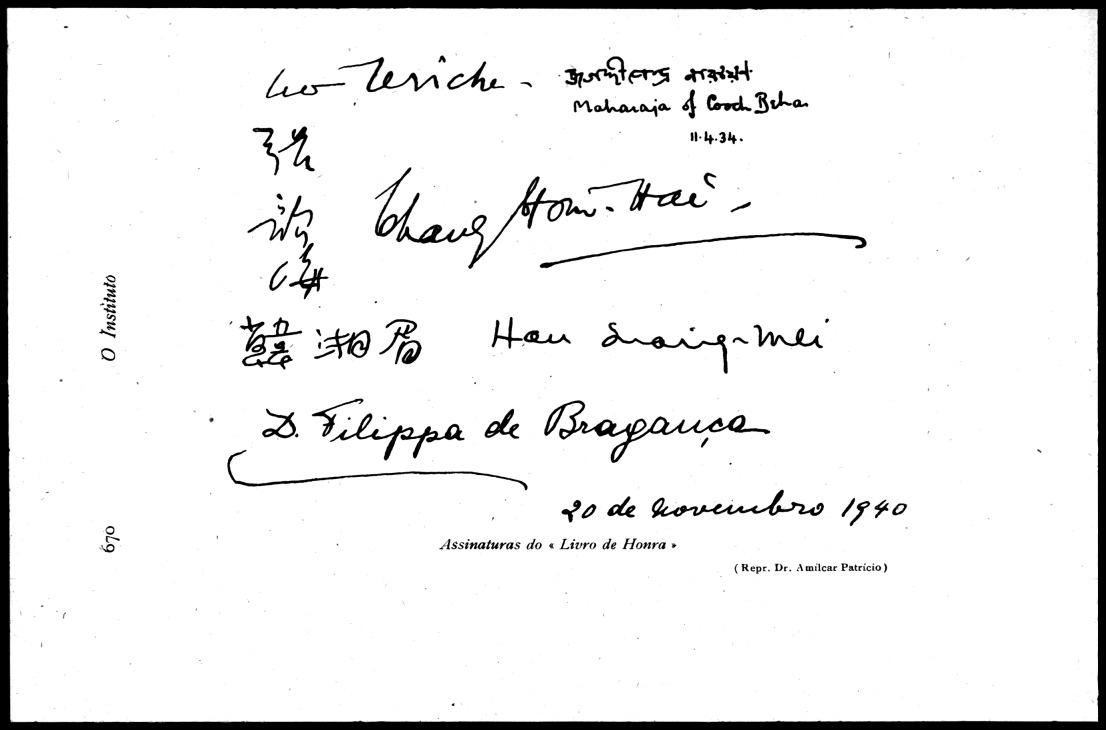 জগদ্দীপেন্দ্র নারায়ণ
Maharaja of Cooch Behar
11.4.34.
張
歆
海
Chang Hsin-Hai
韓湘眉 Han Siang-Mei
D. Filippa de Bragança
20 de Novembro 1940
Assinaturas do « Livro de Honra »
(Repr. Dr. Amílcar Patrício)
O Instituto
670